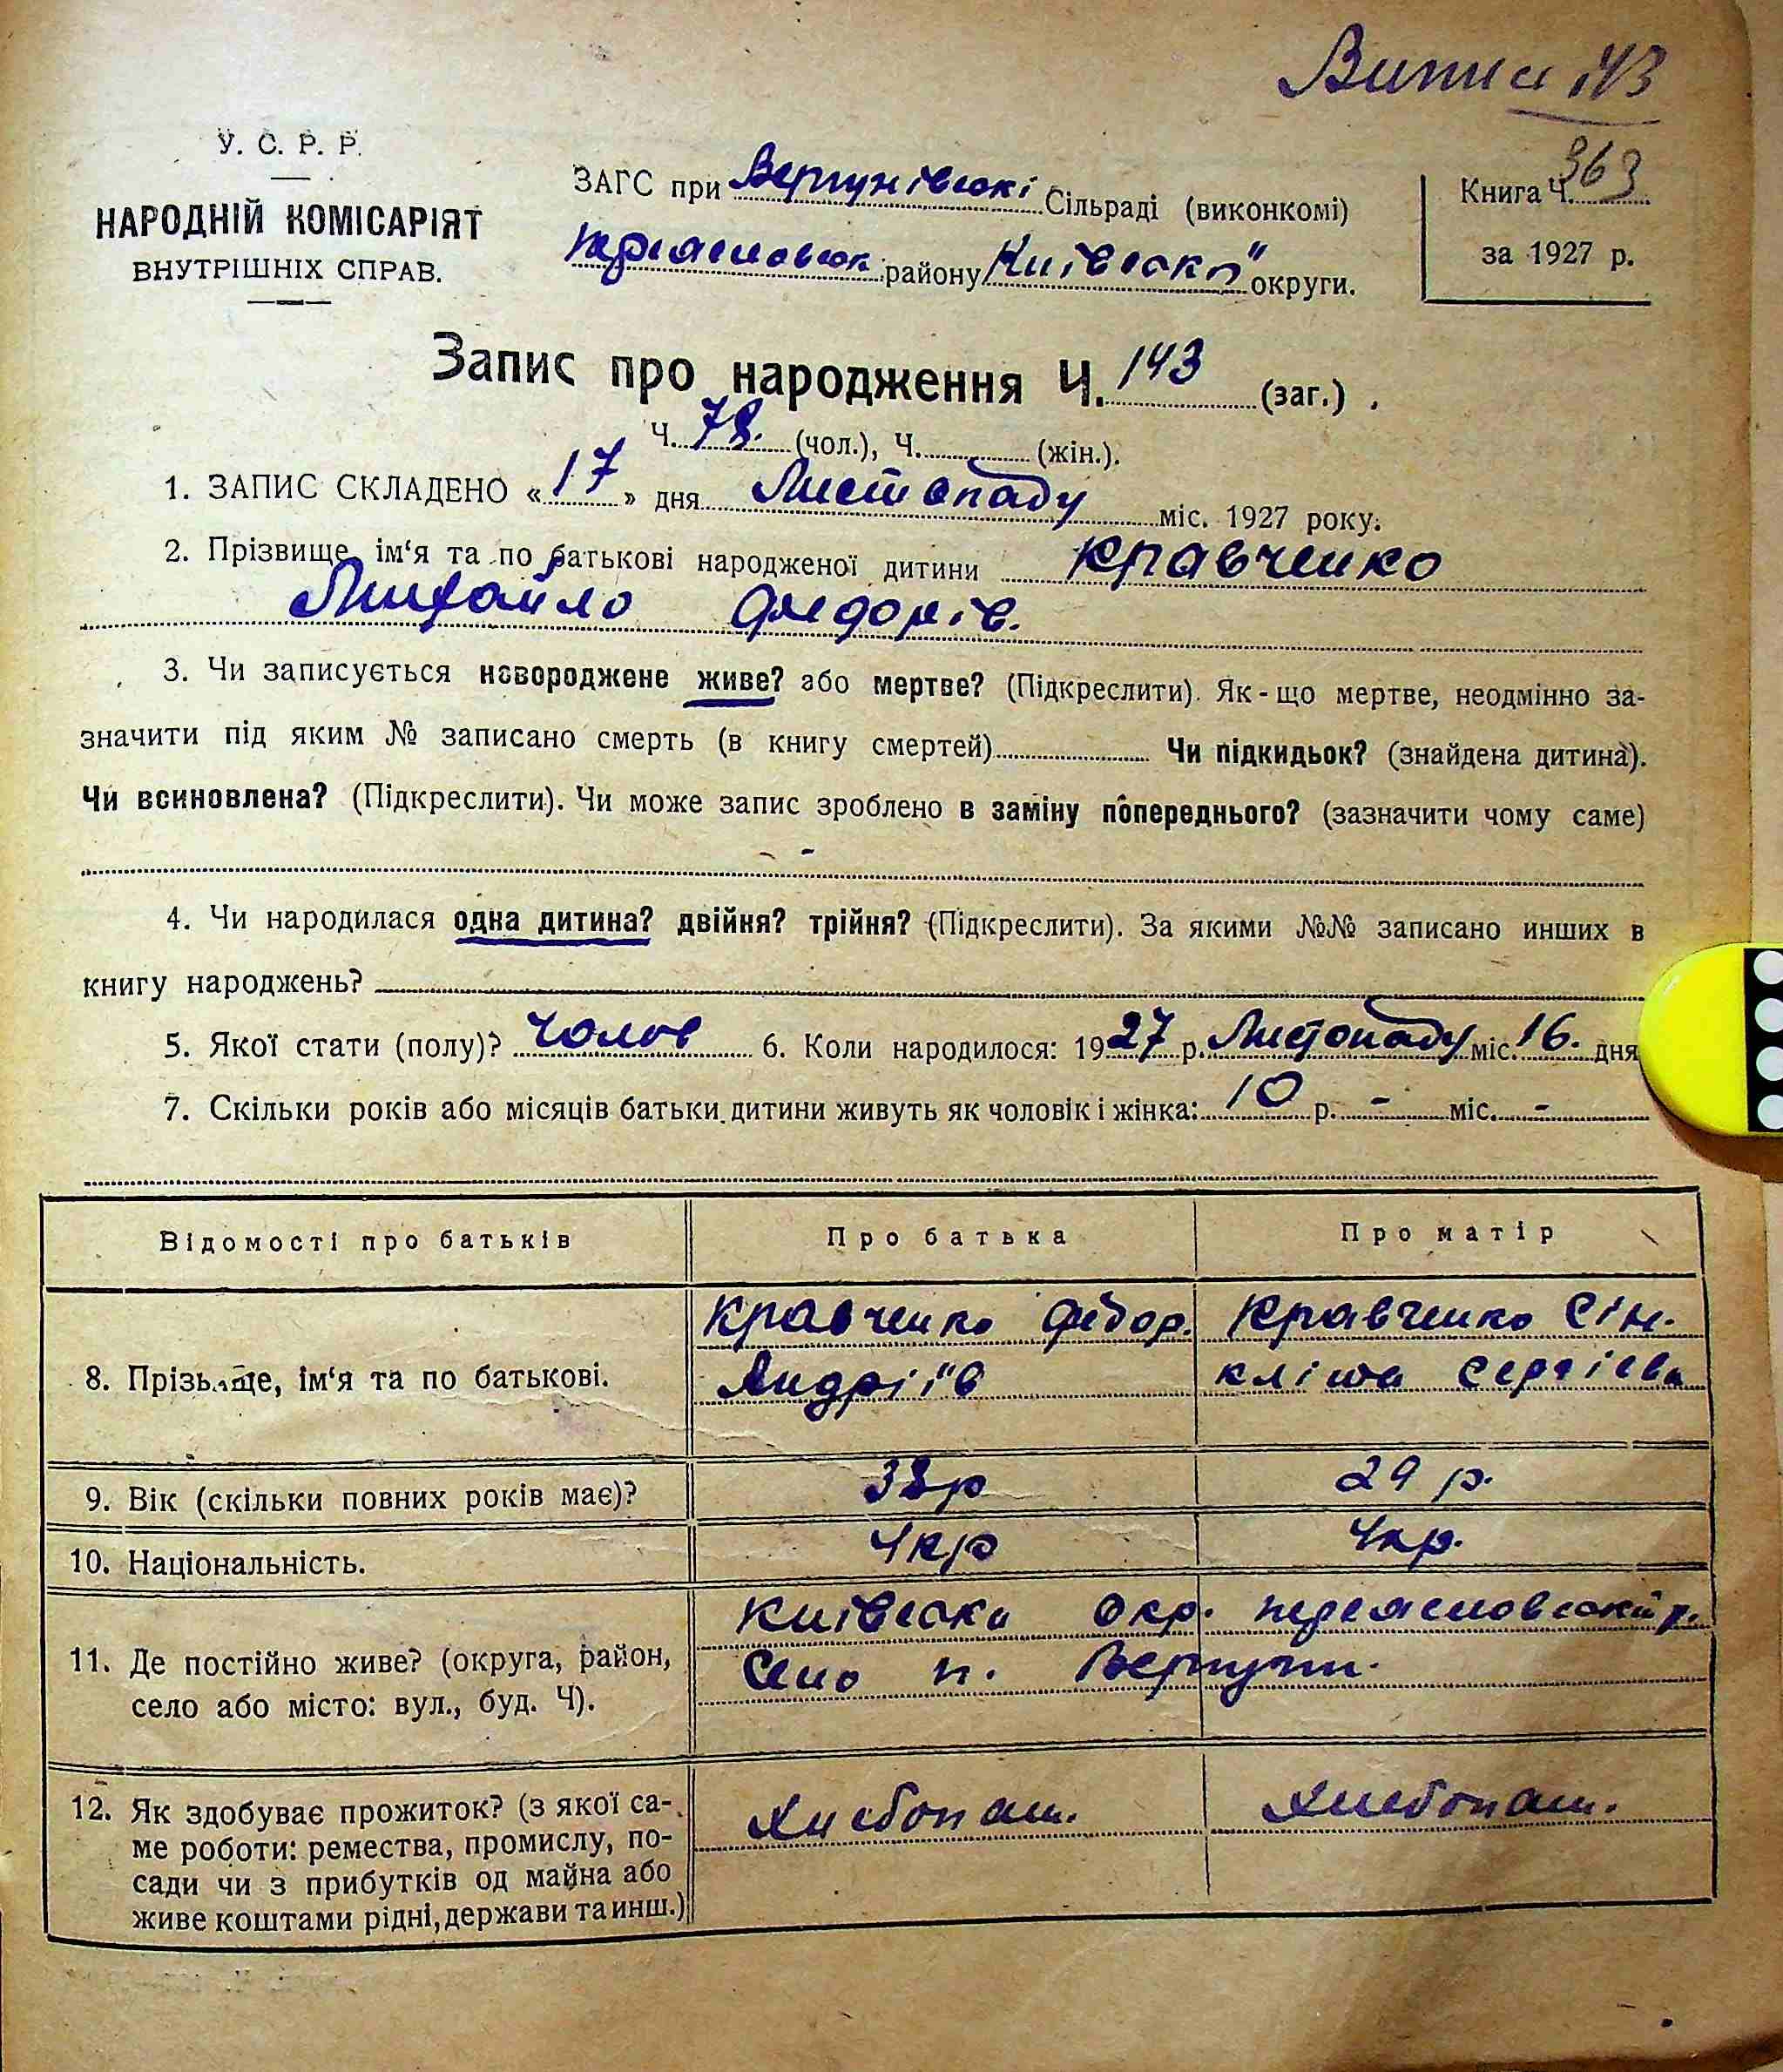 Випис 143
363
У. С. Р. Р.
НАРОДНІЙ КОМІСАРІЯТ
ВНУТРІШНІХ СПРАВ.
ЗАГС при Вергунівські Сільраді (виконкомі)
району Київської округи.
Книга Ч.
за 1927 р.
Запис про народження Ч. 143 (заг.)
Ч. 78. (чол.), Ч. (жін.).
1. ЗАПИС СКЛАДЕНО «17» дня Листопаду міс. 1927 року.
2. Прізвище, ім‘я та по батькові народженої дитини Кравченко
Михайло Федорів.
3. Чи записується новороджене живе? або мертве? (Підкреслити). Як-що мертве, неодмінно за-
значити під яким № записано смерть (в книгу смертей) Чи підкидьок? (знайдена дитина).
Чи всиновлена? (Підкреслити). Чи може запис зроблено в заміну попереднього? (зазначити чому саме)
4. Чи народилася одна дитина? двійня? трійня? (Підкреслити). За якими №№ записано инших в
книгу народжень?
5. Якої стати (полу)? Чолов 6. Коли народилося: 1927 р. Листопаду міс. 16. дня
7. Скільки років або місяців батьки дитини живуть як чоловік і жінка: 10 р. - міс. -
Відомості про батьків Про батька Про матір
8. Прізьвище, ім‘я та по батькові.
Кравченко Федор. Кравченко Сін.
Андріїв кліта Сергієва
9. Вік (скільки повних років має)? 38р 29 р.
10. Національність. Укр Укр.
11. Де постійно живе? (округа, район,
село або місто: вул., буд. Ч).
Київська Окр. Переяславський р.
Село п. Вергуни.
12. Як здобуває прожиток? (з якої са-
ме роботи: ремества, промислу, по-
сади чи з прибутків од майна або
живе коштами рідні, держави та инш.)
Хлебопаш. Хлебопаш.